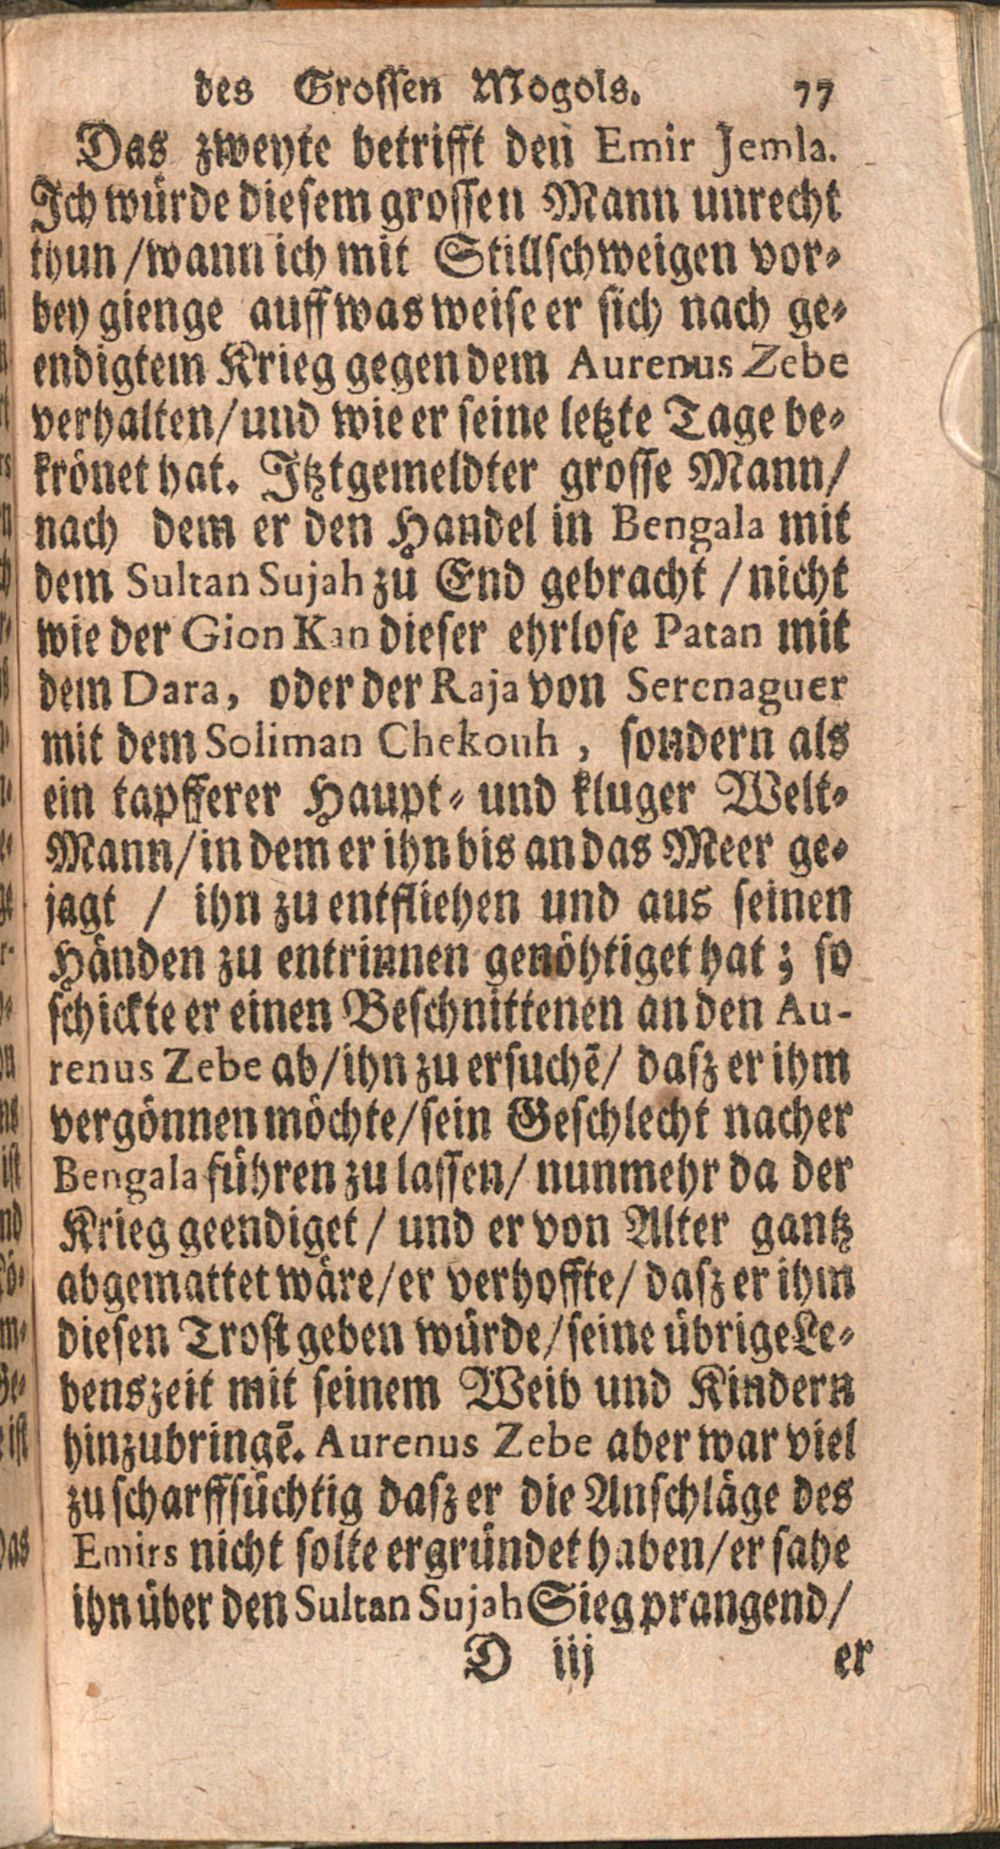 des Grossen Mogols. 77
Das zweyte betrifft den Emir Jemla.
Ich würde diesem grossen Mann unrecht
thun / wann ich mit Stillschweigen vor-
bey gienge auff was weise er sich nach ge-
endigtem Krieg gegen dem Aurenus Zebe
verhalten / und wie er seine letzte Tage be-
krönet hat. Itztgemeldter grosse Mann /
nach dem er den Handel in Bengala mit
dem Sultan Sujah zu End gebracht / nicht
wie der Gion Kan dieser ehrlose Patan mit
dem Dara, oder der Raja von Serenaguer
mit dem Soliman Chekouh, sondern als
ein tapfferer Haupt- und kluger Welt-
Mann / in dem er ihn bis an das Meer ge-
jagt / ihn zu entfliehen und aus seinen
Händen zu entrinnen genöhtiget hat; so
schickte er einen Beschnittenen an den Au-
renus Zebe ab / ihn zu ersuchē / dasz er ihm
vergönnen möchte / sein Geschlecht nacher
Bengala führen zu lassen / nunmehr da der
Krieg geendiget / und er von Alter gantz
abgemattet wäre / er verhoffte / dasz er ihm
diesen Trost geben würde / seine übrige Le-
benszeit mit seinem Weib und Kindern
hinzubringē. Aurenus Zebe aber war viel
zu scharffsüchtig dasz er die Anschläge des
Emirs nicht solte ergründet haben / er sahe
ihn über den Sultan Sujah Sieg prangend /
D iij er